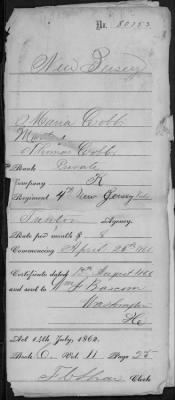 No. 80753
New Jersey
Maria Cobb
Mother
Thomas Cobb
Rank Private
Company K
Regiment 4th New Jersey Vols
Trenton Agency.
Rate per month $ 8
Commencing April 25th
Certificate dated August
and sent to Wm Bascom
Washington
Act 14th July, 1862.
Book O Vol. 11 Page 25
Clerk